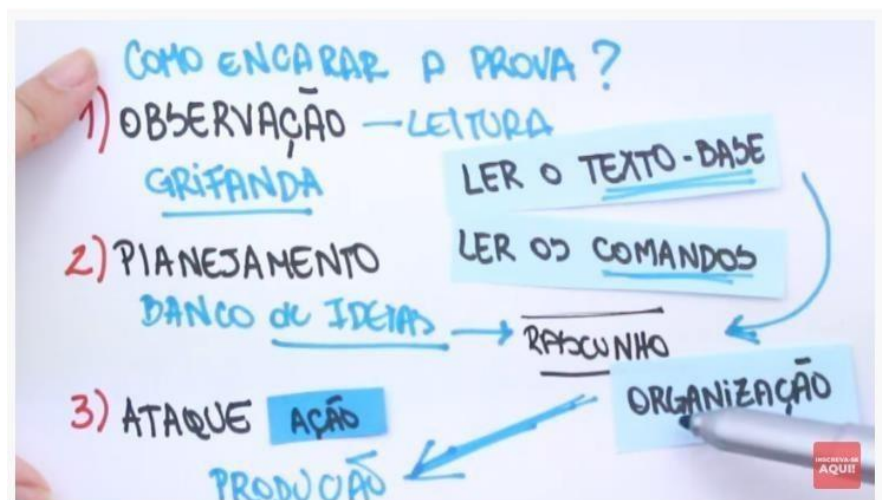 COMO ENCARAR A PROVA?
1) OBSERVAÇÃO — LEITURA
GRIFANDA
LER O TEXTO-BASE
LER OS COMANDOS
2) PLANEJAMENTO
BANCO de IDEIAS → RASCUNHO
ORGANIZAÇÃO
3) ATAQUE AÇÃO
PRODUÇÃO
INSCREVA-SE
AQUI!